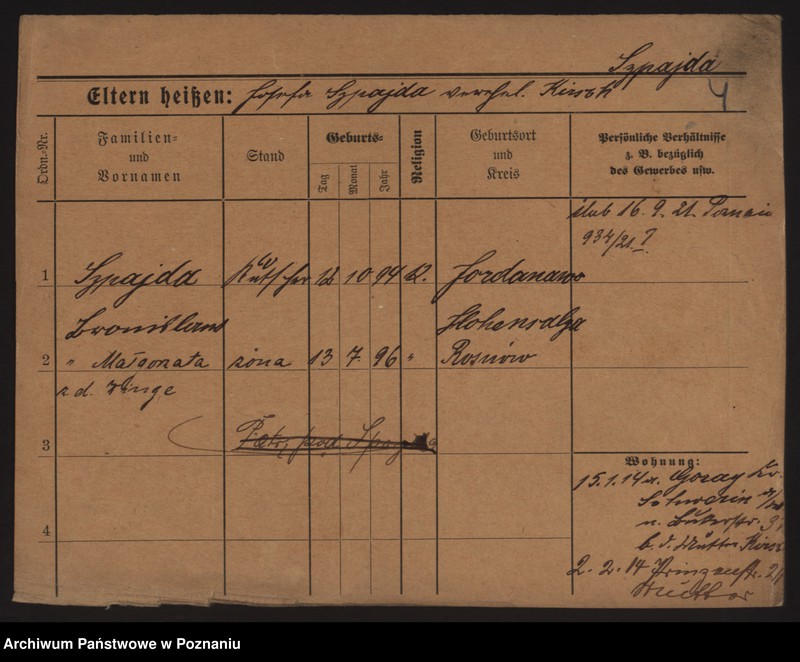 Szpajda
Eltern heißen: Josefa Szpajda verehel. Kirsch
4
Ordn.-Nr.
Familien- und Vornamen
Stand
Geburts-
Tag
Monat
Jahr
Religion
Geburtsort und Kreis
Persönliche Verhältnisse z. B. bezüglich des Gewerbes usw.
ślub 16. 9. 21. Poznań
934/21.
1 Szpajda Kutscher 12 10 94 k. Jordanowo
Bronislaus Hohensalza
2 " Małgorzata żona 13 7. 96 " Rosnowo
z d.
3
Wohnung:
15.1.14 v. Goray Kr.
Schwerin a/W
n. 
b. d. Mutter Kirsch
4
2. 2. 14 Prinzenstr.
Archiwum Państwowe w Poznaniu